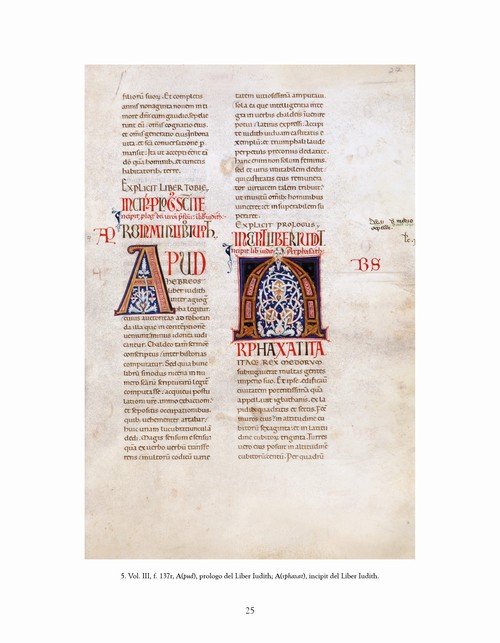 filiorum suorum. Et completis
annis nonaginta novem in ti
more dni cum gaudio sepelie
runt eū. omis cognatio eius.
et omis generatio eius in bona
vita. et sca conversatione p
mansit: ita ut accepti eent tā
dō quā hominib. et cunctis
habitatorib. terre.
EXPLICIT LIBER TOBIE,
hebreos
liber iudith
inter agiog
pha legitur
cuius auctoritas ad roboran
da illa que in contēptione
veniunt. minus idonea iudi
cantur. Chaldeo tam sermone
conscriptus / inter historias
computatur. Sed quia hunc
librū sinodus nicena in nu
mero scarū scripturarū legit
computasse / acquievi postu
lationi urē. immo exactioni.
et sepositis occupationibus.
quib. vehementer artabar /
huic unam lucubratiunculā
dedi. Magis sensum e sensu
quā ex verbo verbū transfe
rens / multorū codicū varie
tatem vitiosissimā amputavi.
sola ea que intelligentia inte
gra in verbis chaldeis invenire
potui / latinis expressi. Accipi
te iudith viduam castitatis e
xemplū et triumphali laude
perpetuis preconiis declarate.
Hanc enim non solum feminis.
sed et viris imitabilem dedit
qui castitatis eius remunera
tor virtutem talem tribuit
ut invictū omib. hominibus
vinceret et insuperabilem su
peraret.
EXPLICIT PROLOGUS,
INCIPIT LIBER IUDIT
APUD
RPHAXAT ITA
ITAQ. REX MEDORUM
subiugaverat multas gentes
imperio suo. Et ipse edificavi
civitatem potentissimā quā
appellavit egbathanis. ex la
pidib. quadratis et sectis. Fec
muros eius in altitudine cu
bitorū sexaginta et in latitu
dine cubitorū triginta. Turres
vero eius posuit in altitudine
cubitorū centū. Per quadrū
5. Vol. III, f. 137r, A(pud), prologo del Liber Iudith; A(rphaxat), incipit del Liber Iudith.
25